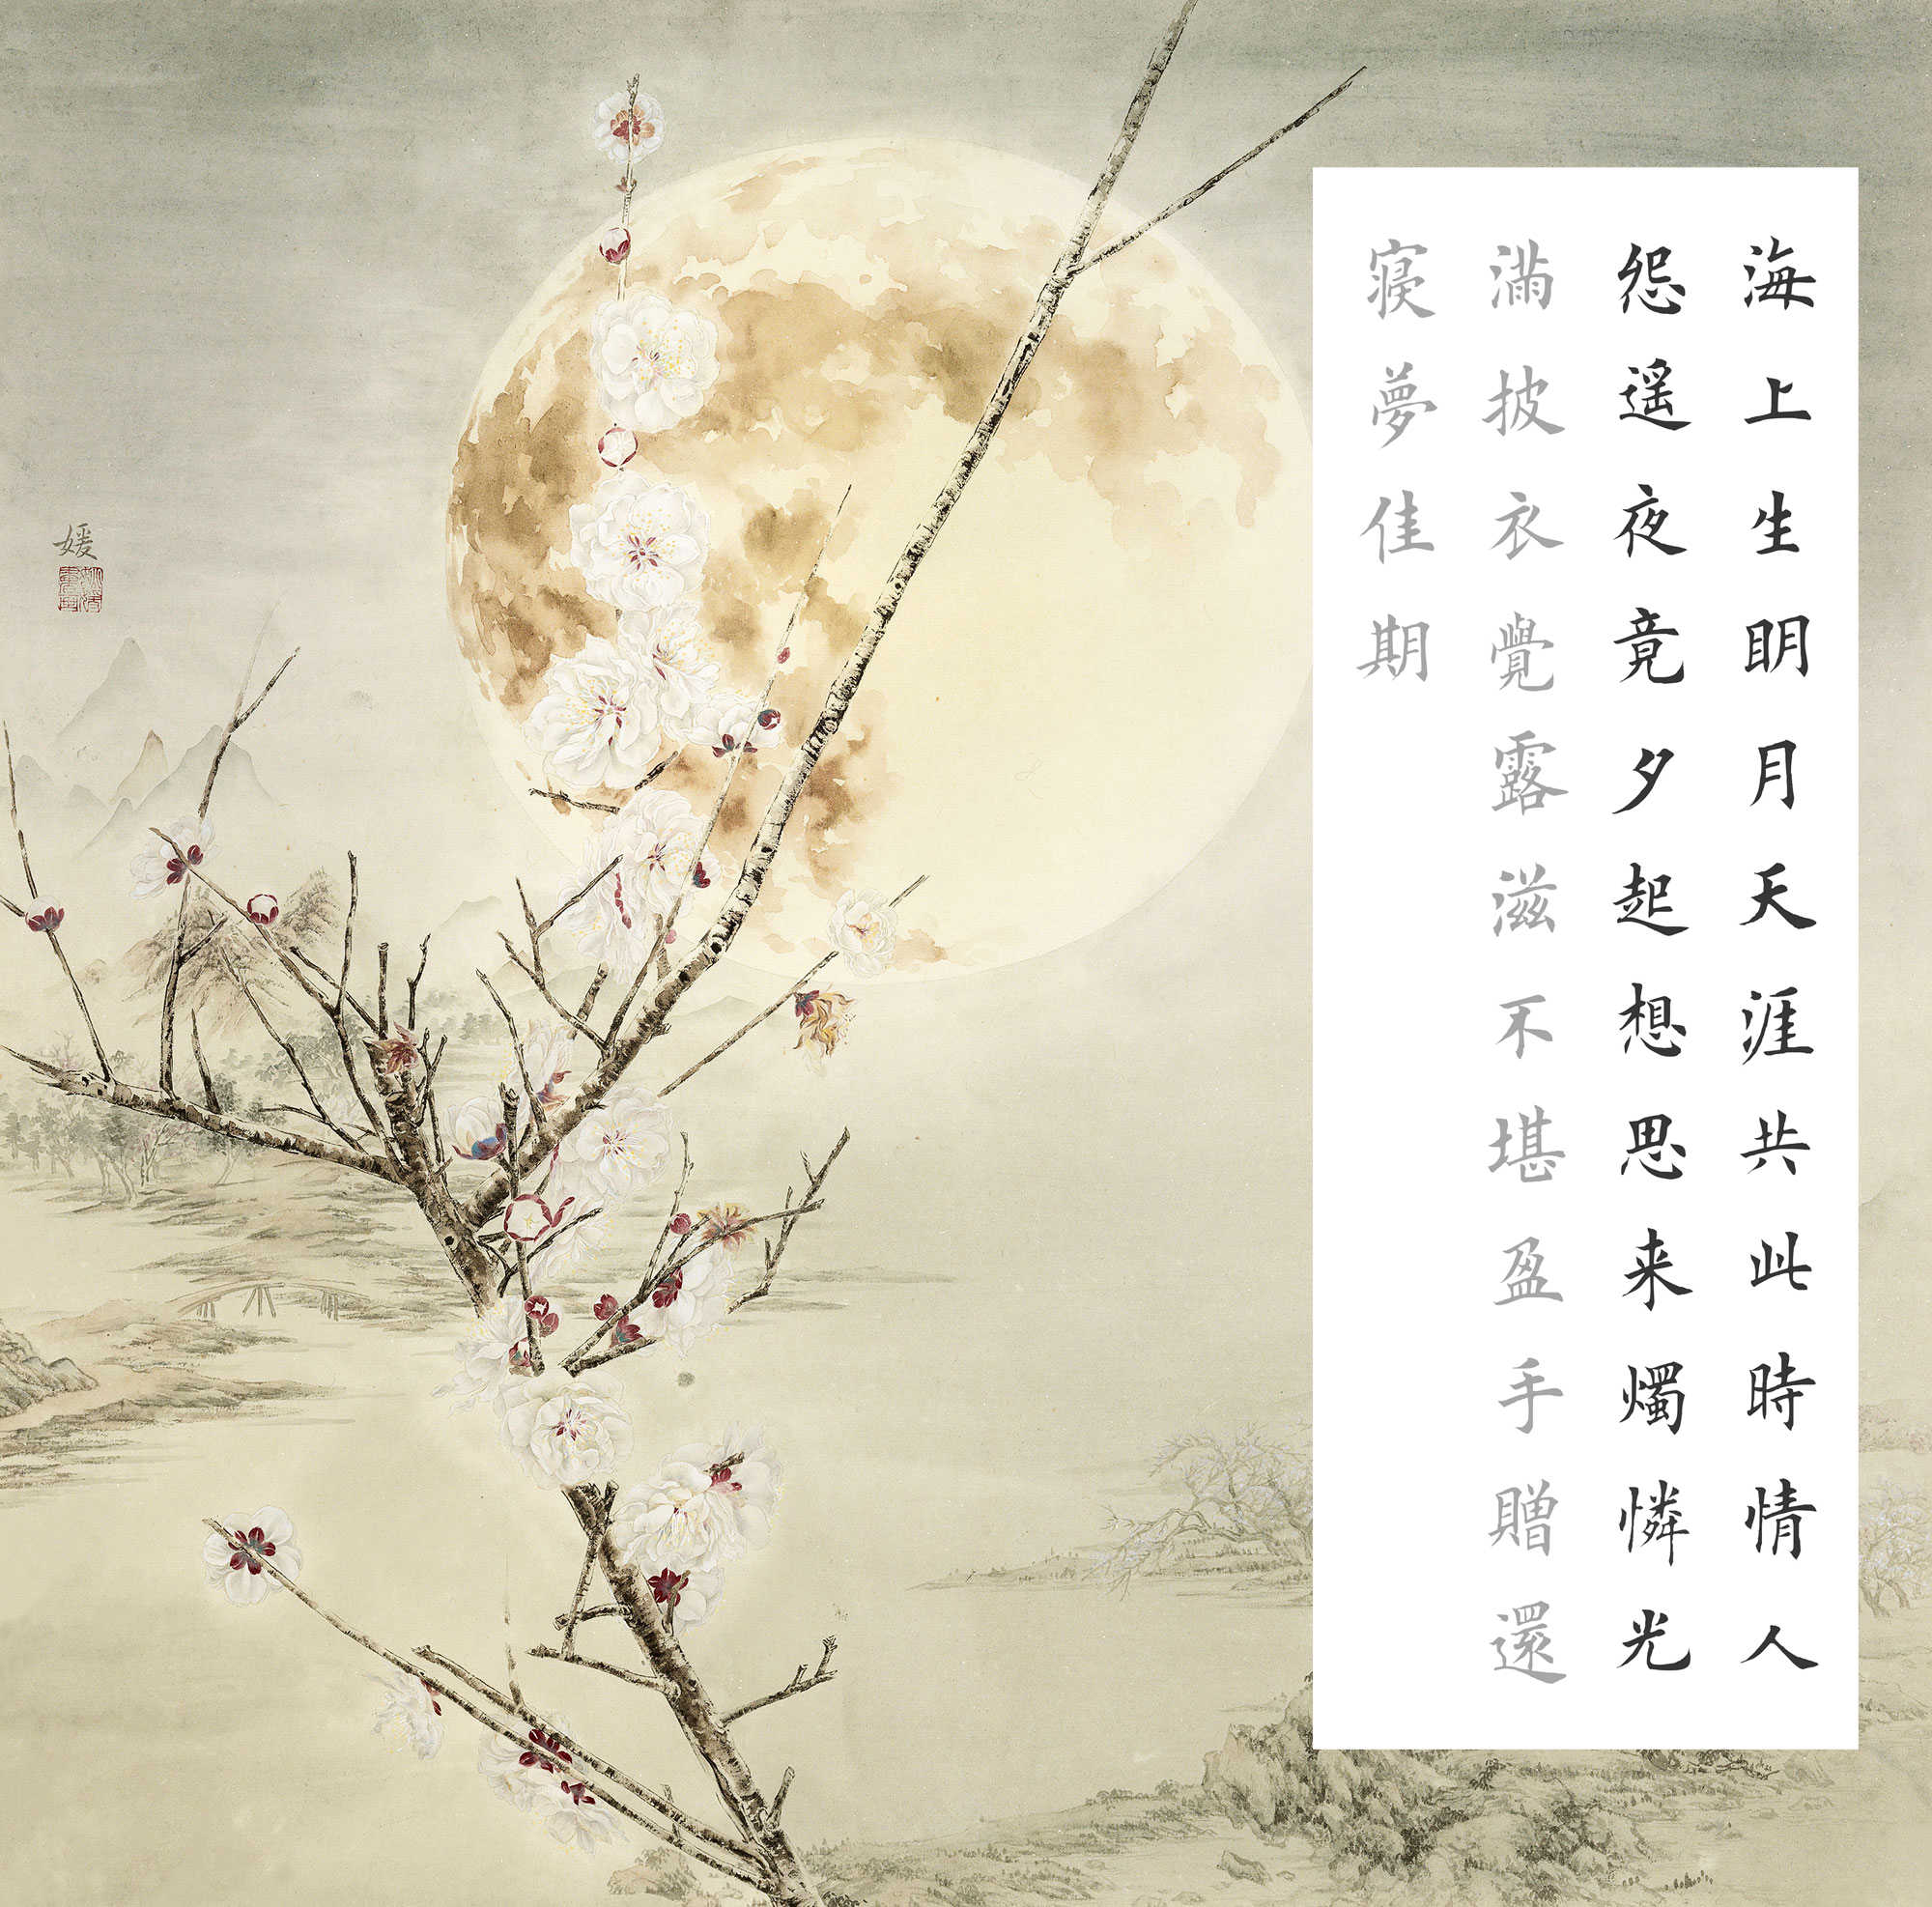 海上生明月天涯共此時情人
怨遥夜竟夕起想思来燭憐光
滿披衣覺露滋不堪盈手贈還
寢夢佳期
媛